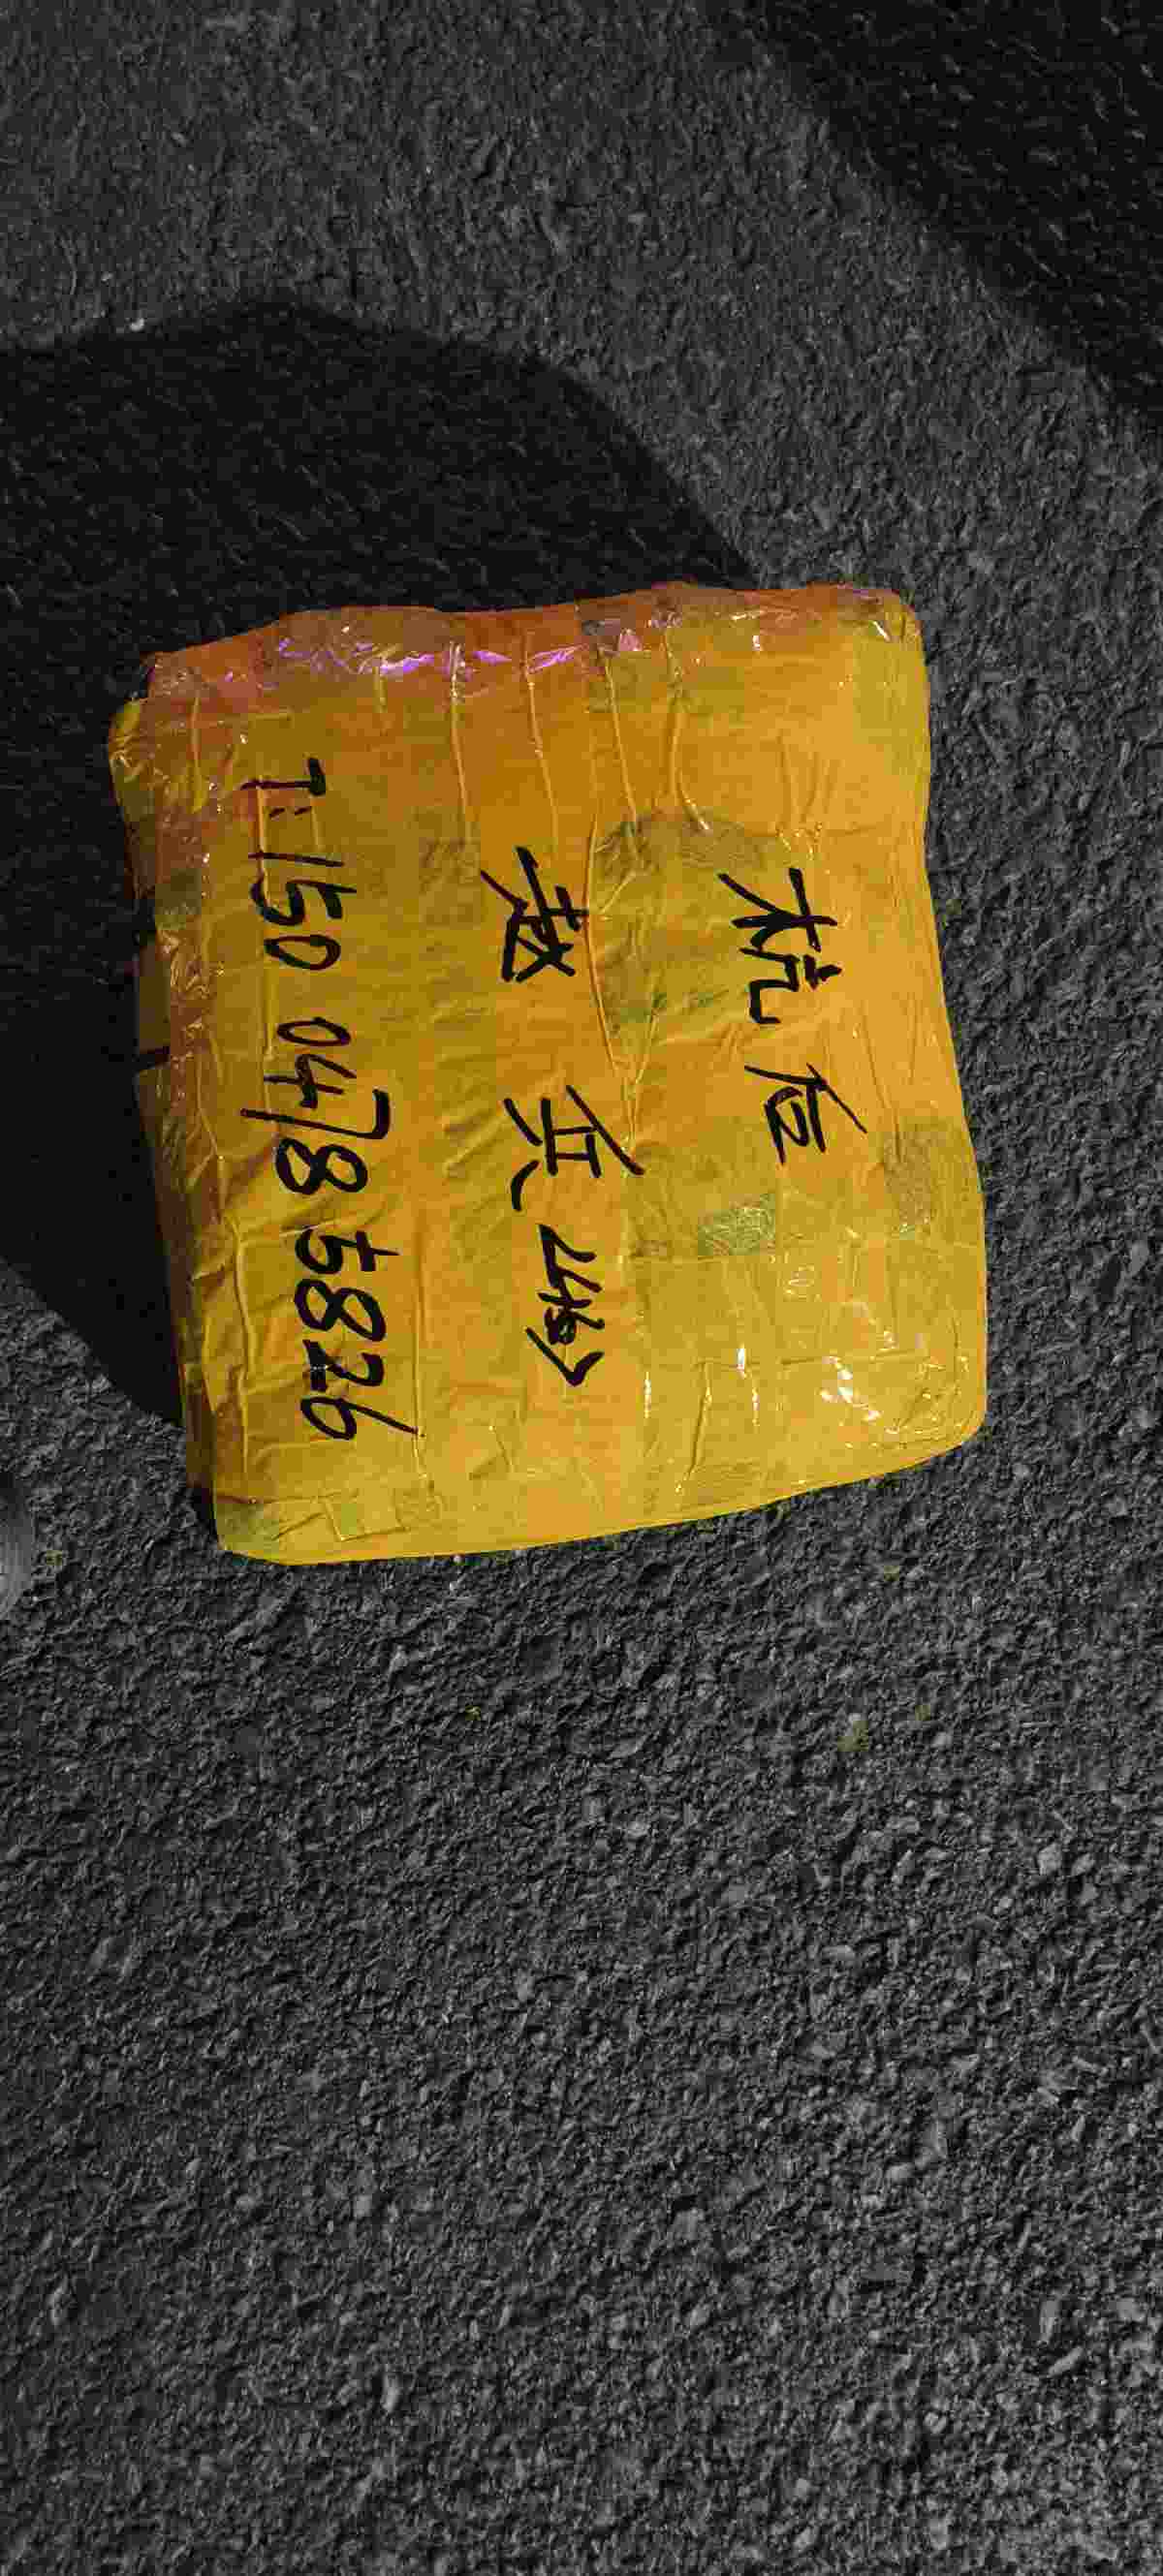 杭后
赵烎（收）
T: 150 0478 5826